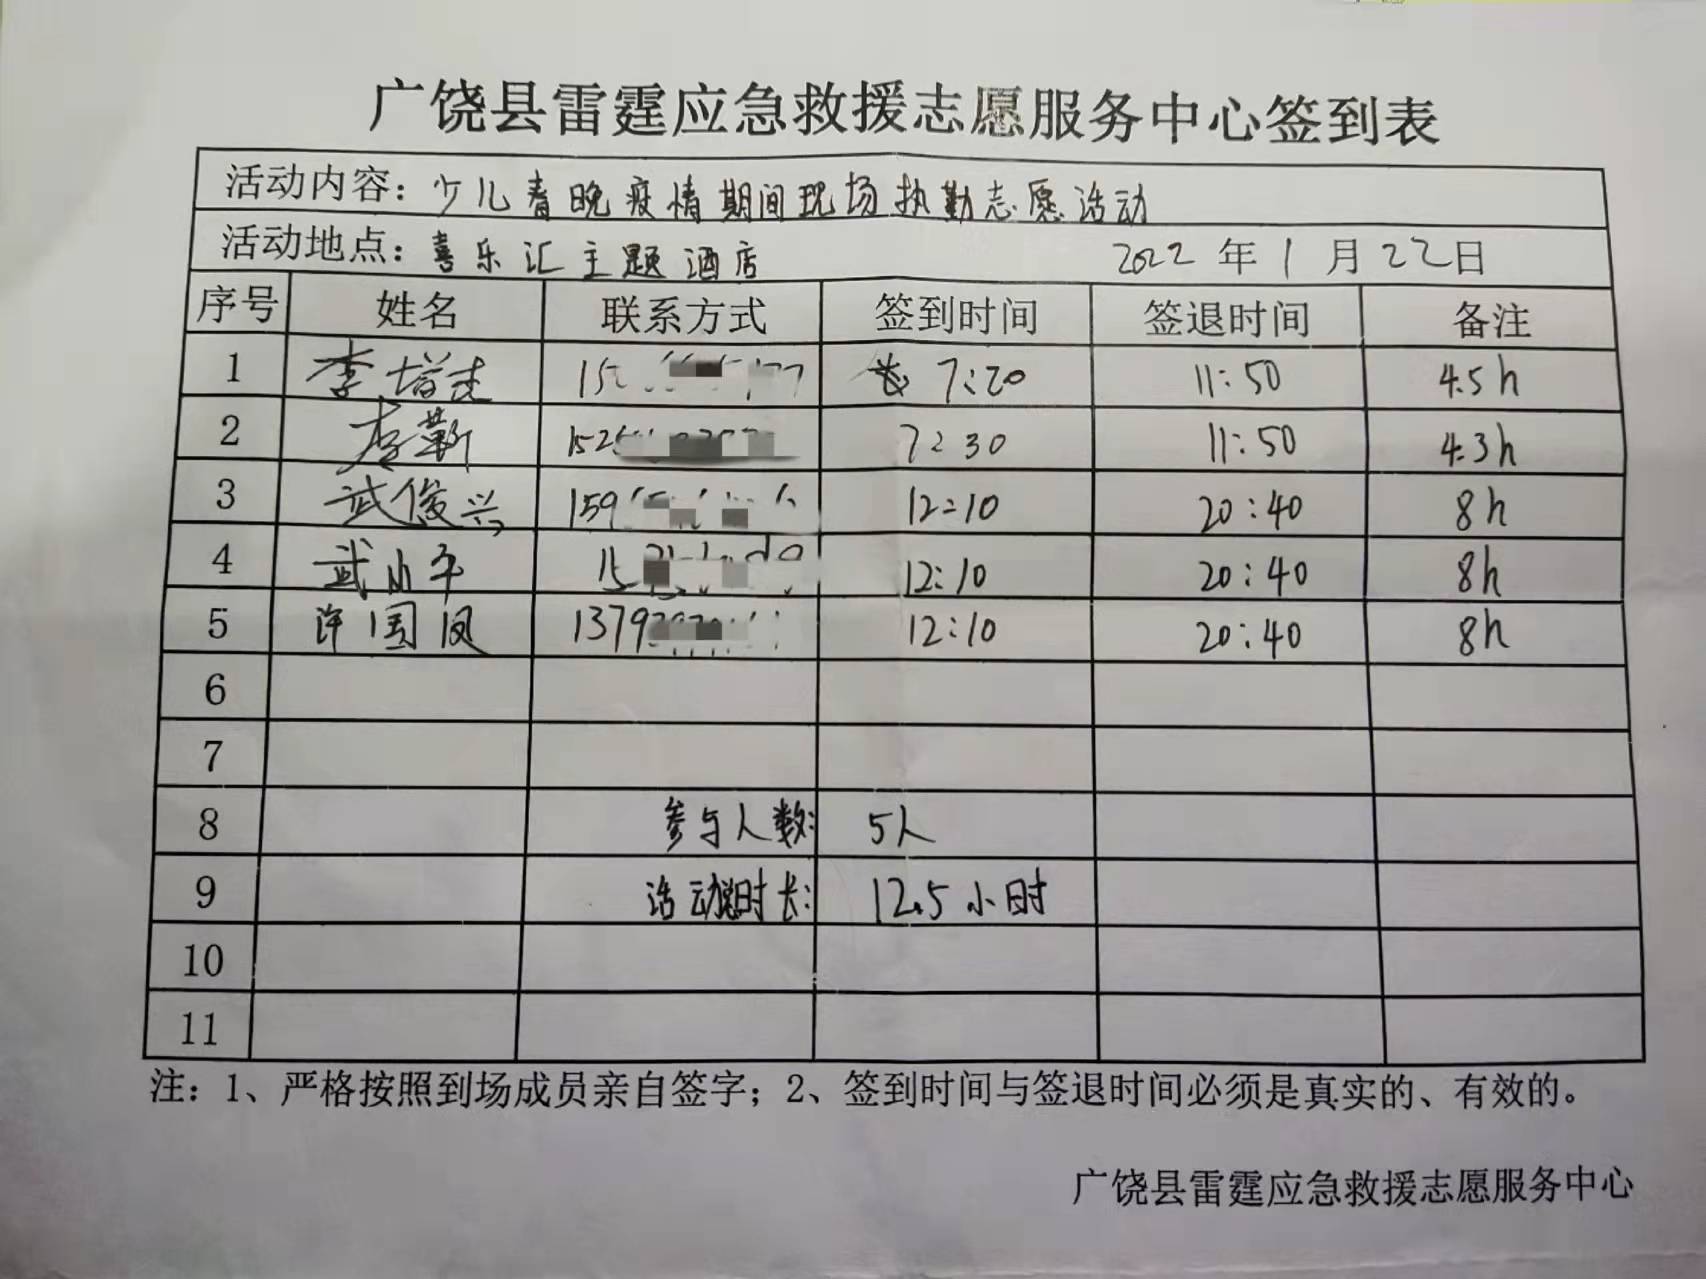 广饶县雷霆应急救援志愿服务中心签到表
活动内容：少儿春晚疫情期间现场执勤志愿活动
活动地点：喜乐汇主题酒店 2022年1月22日
序号 姓名 联系方式 签到时间 签退时间 备注
1 李增志 7:20 11:50 4.5h
2 李勤 7:30 11:50 4.3h
3 武俊兴 12:10 20:40 8h
4 武小平 12:10 20:40 8h
5 许国凤 12:10 20:40 8h
6
7
8 参与人数: 5人
9 活动总时长: 12.5小时
10
11
注：1、严格按照到场成员亲自签字；2、签到时间与签退时间必须是真实的、有效的。
广饶县雷霆应急救援志愿服务中心